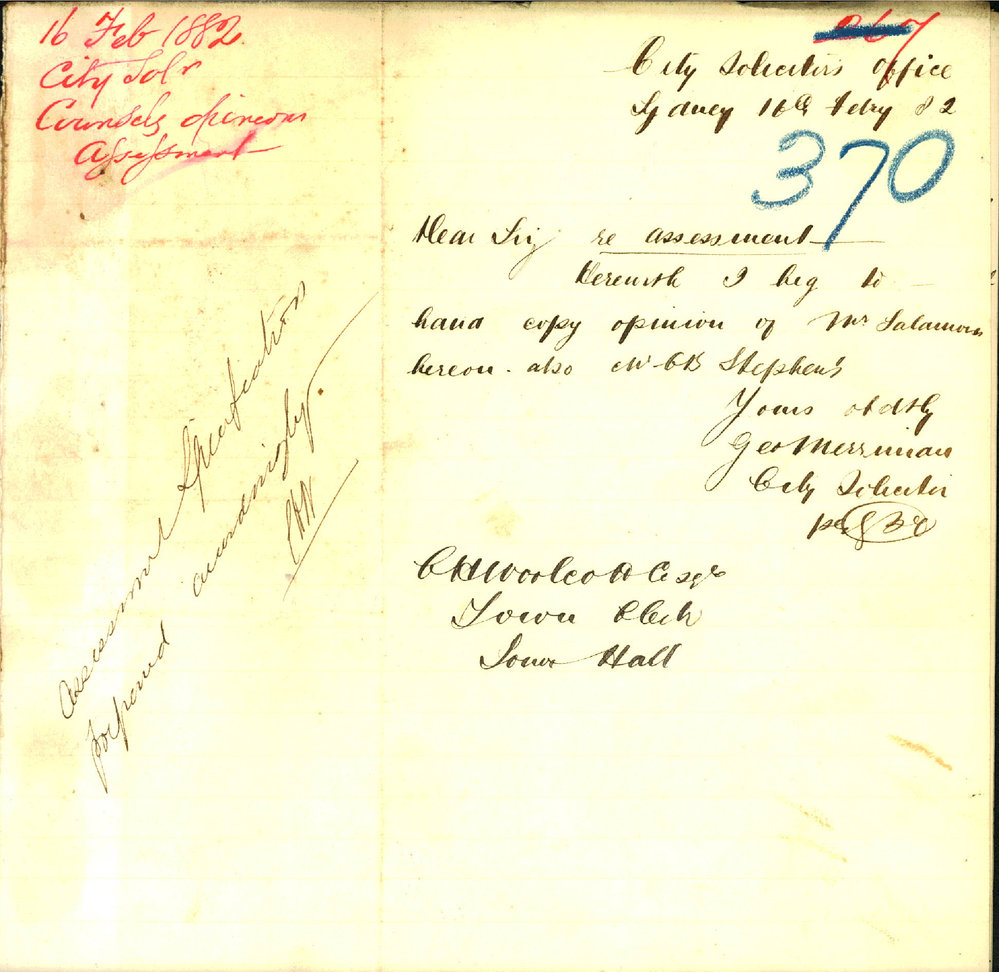 16 Feb 1882.
City Solr
Counsels opinion
Assessment
267
City Solicitors Office
Sydney 16th Febry 82
370
Dear Sir, re assessment
Herewith I beg to
hand copy opinion of Mr Salamons
hereon. also Mr CB Stephen's
Yours obdtly
Geo Merriman
City Solicitor
per
C H Woolcott Esqr
Town Clerk
Town Hall
Assessment
postponed accordingly.
CHW